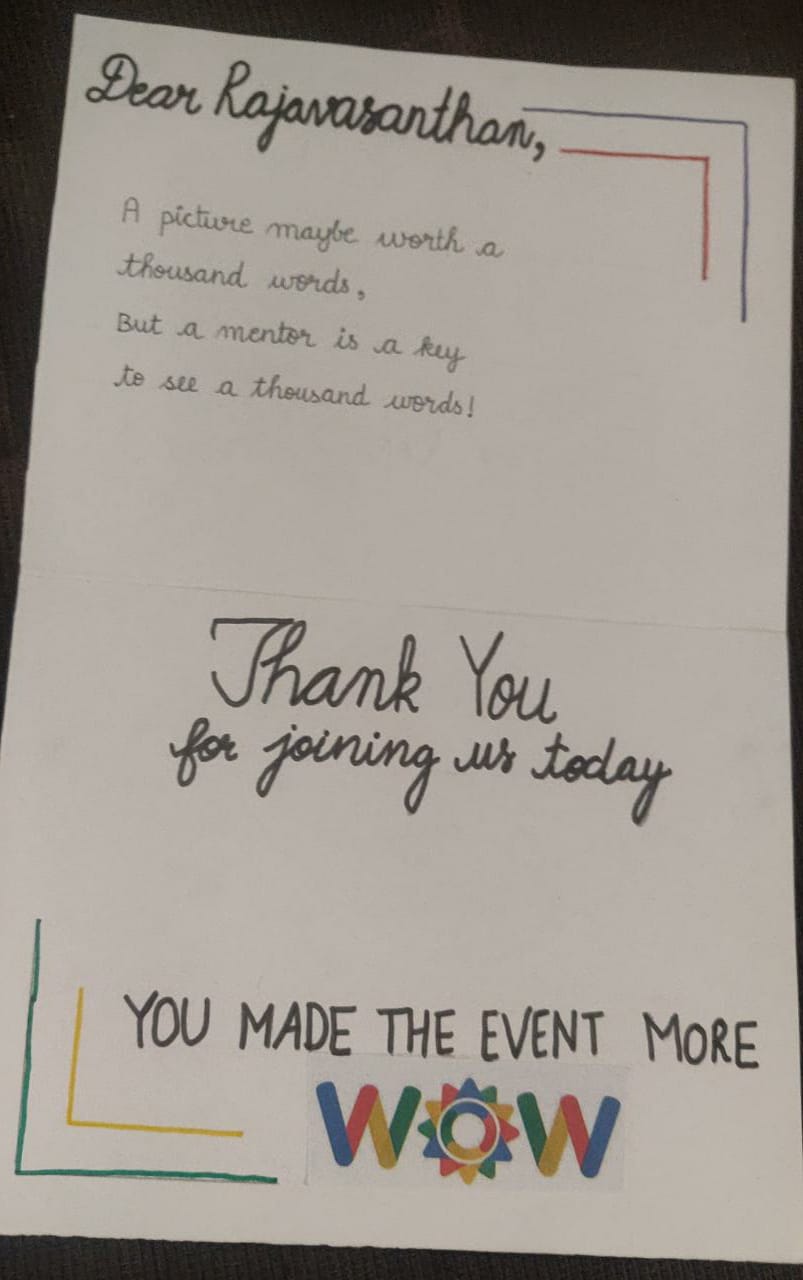 Dear Rajavasanthan,
A picture maybe worth a
thousand words,
But a mentor is a key
to see a thousand words!
Thank You
for joining us today
YOU MADE THE EVENT MORE
WOW